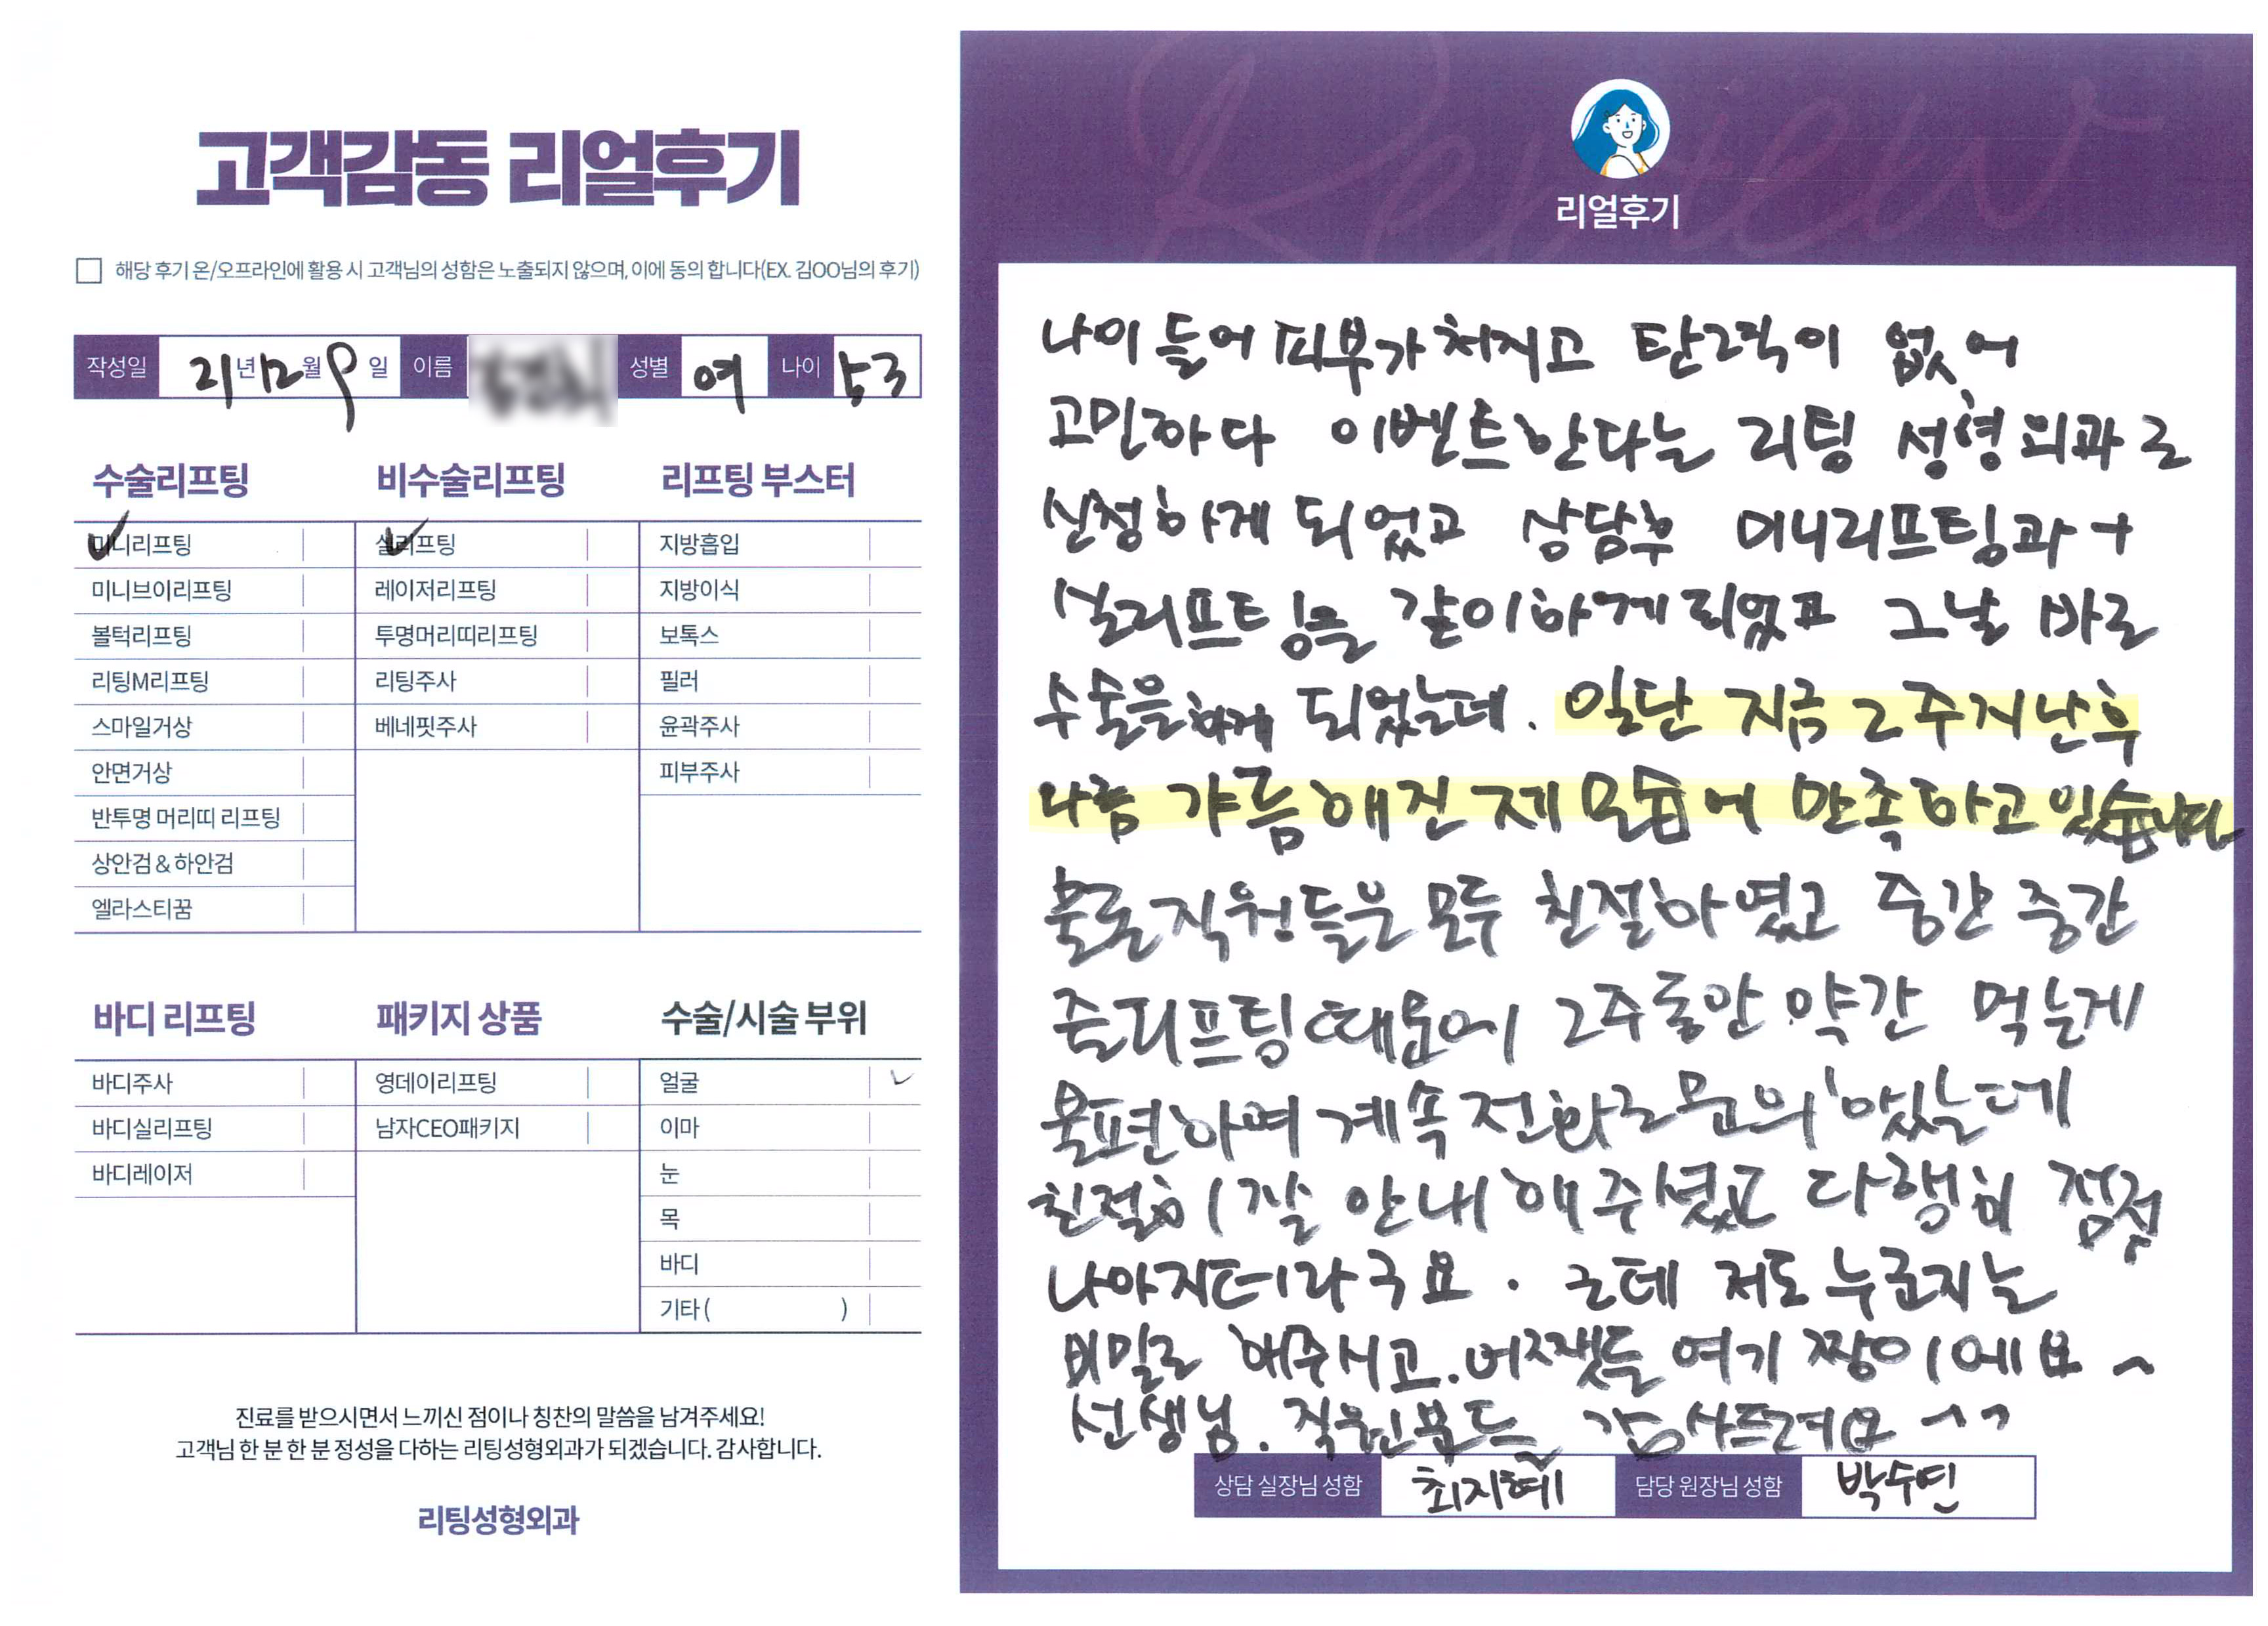 고객감동 리얼후기
해당 후기 온/오프라인에 활용 시 고객님의 성함은 노출되지 않으며, 이에 동의 합니다(EX. 김OO님의 후기)
작성일 21년 12월 9일 이름 성별 여 나이 53
수술리프팅
미니리프팅
미니브이리프팅
볼턱리프팅
리팅M리프팅
스마일거상
안면거상
반투명 머리띠 리프팅
상안검 & 하안검
엘라스티꿈
비수술리프팅
실리프팅
레이저리프팅
투명머리띠리프팅
리팅주사
베네핏주사
리프팅 부스터
지방흡입
지방이식
보톡스
필러
윤곽주사
피부주사
바디 리프팅
바디주사
바디실리프팅
바디레이저
패키지 상품
영데이리프팅
남자CEO패키지
수술/시술 부위
얼굴
이마
눈
목
바디
기타 ( )
진료를 받으시면서 느끼신 점이나 칭찬의 말씀을 남겨주세요!
고객님 한 분 한 분 정성을 다하는 리팅성형외과가 되겠습니다. 감사합니다.
리팅성형외과
Review
리얼후기
나이 들어 피부가 처지고 탄력이 없어
고민하다 이벤트한다는 리팅 성형외과로
신청하게 되었고 상담후 미니리프팅과 +
실리프팅을 같이하게 되었고 그날 바로
수술을 하게 되었는데. 일단 지금 2주지난후
나름 갸름해진 제 모습에 만족하고 있습니다
물론 직원들은 모두 친절하였고 중간 중간
리프팅때문에 2주동안 약간 먹는게
불편하여 계속 전화로 문의 했는데
친절히 잘 안내해주셨고 다행히 점점
나아지더라구요. 근데 저도 누군지는
비밀로 해주시고. 어쨋든 여기 짱이에요~
선생님. 직원분들 감사드려요 ^^
상담 실장님 성함 최지혜 담당 원장님 성함 박수민